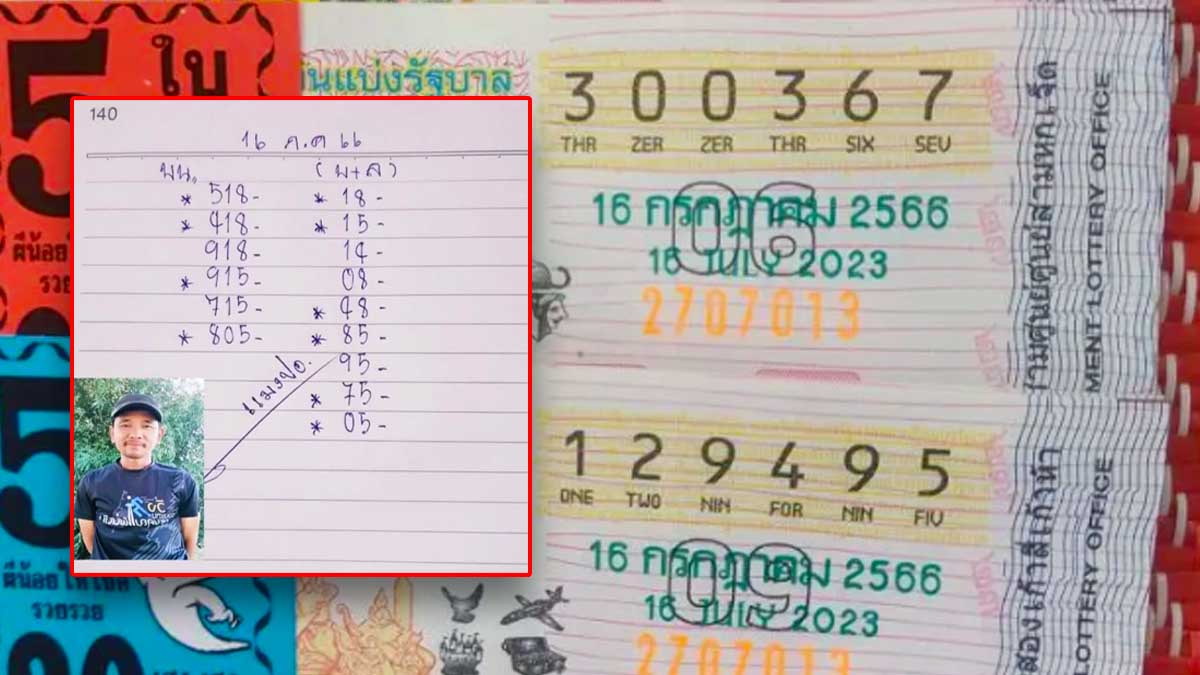 5 ใบ
ผีน้อย
รวย
5
ผีน้อย ให้โชค
รวยรวย
140
16 ก.ค 66
บน. (บ+ล)
* 518- * 18-
* 418- * 15-
918- 14-
* 915- 08-
715- * 48-
* 805- * 85-
95-
* 75-
* 05-
แมงปอ.
นแบ่งรัฐบาล
3 0 0 3 6 7
THR ZER ZER THR SIX SEV
16 กรกฎาคม 2566
06
16 JULY 2023
2707013
ามศูนย์ศูนย์สามหกเจ็ด
MENT LOTTERY OFFICE
1 2 9 4 9 5
ONE TWO NIN FOR NIN FIV
16 กรกฎาคม 2566
09
16 JULY 2023
2707013
สองเก้าสี่เก้าห้า
LOTTERY OFFICE